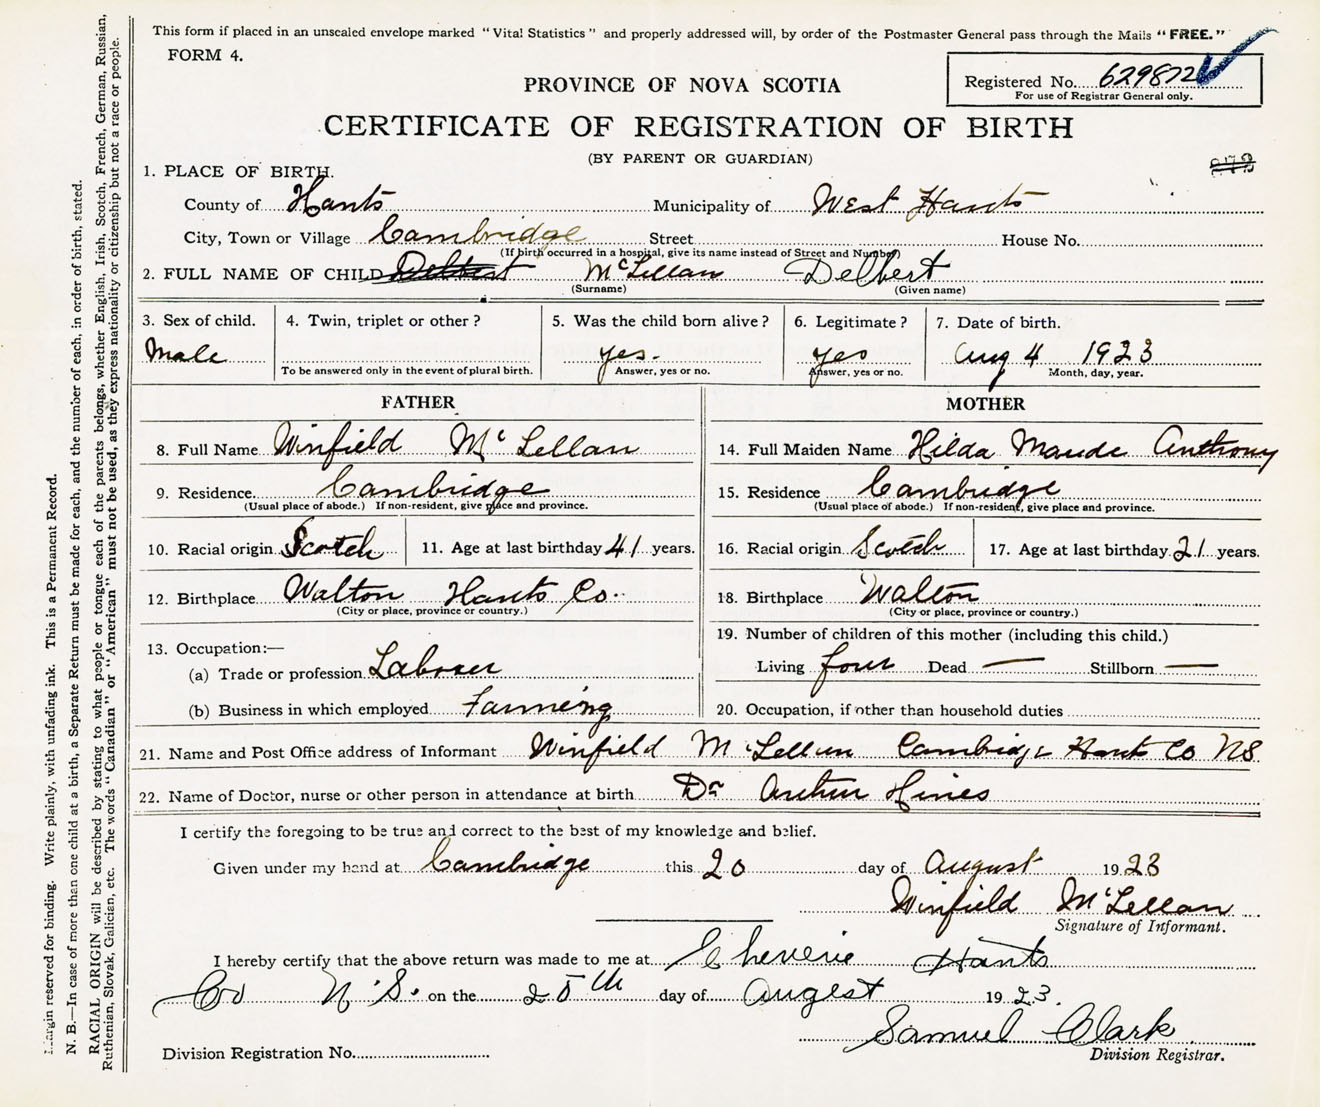 This form if placed in an unsealed envelope marked "Vital Statistics" and properly addressed will, by order of the Postmaster General pass through the Mails "FREE."
FORM 4.
Registered No. 629872
For use of Registrar General only.
PROVINCE OF NOVA SCOTIA
CERTIFICATE OF REGISTRATION OF BIRTH
(BY PARENT OR GUARDIAN)
1. PLACE OF BIRTH.
County of Hants Municipality of West Hants
City, Town or Village Cambridge Street House No.
(If birth occurred in a hospital, give its name instead of Street and Number)
2. FULL NAME OF CHILD Delbert McLellan Delbert
(Surname) (Given name)
3. Sex of child. 4. Twin, triplet or other? 5. Was the child born alive? 6. Legitimate? 7. Date of birth.
Male yes. yes Aug 4 1923
To be answered only in the event of plural birth. Answer, yes or no. Answer, yes or no. Month, day, year.
FATHER
8. Full Name Winfield McLellan
9. Residence Cambridge
(Usual place of abode.) If non-resident, give place and province.
10. Racial origin Scotch 11. Age at last birthday 41 years.
12. Birthplace Walton Hants Co.
(City or place, province or country.)
13. Occupation:—
(a) Trade or profession Laborer
(b) Business in which employed Farming
MOTHER
14. Full Maiden Name Hilda Maude Anthony
15. Residence Cambridge
(Usual place of abode.) If non-resident, give place and province.
16. Racial origin Scotch 17. Age at last birthday 21 years.
18. Birthplace Walton
(City or place, province or country.)
19. Number of children of this mother (including this child.)
Living four Dead — Stillborn —
20. Occupation, if other than household duties
21. Name and Post Office address of Informant Winfield McLellan Cambridge Hants Co NS
22. Name of Doctor, nurse or other person in attendance at birth Dr Arthur Hines
I certify the foregoing to be true and correct to the best of my knowledge and belief.
Given under my hand at Cambridge this 20 day of August 1923
Winfield McLellan
Signature of Informant.
I hereby certify that the above return was made to me at Cheverie Hants
Co N.S. on the 25th day of Augest 1923.
Samuel Clark
Division Registrar.
Division Registration No.
Margin reserved for binding. Write plainly, with unfading ink. This is a Permanent Record.
N. B.—In case of more than one child at a birth, a Separate Return must be made for each, and the number of each, in order of birth, stated.
RACIAL ORIGIN will be described by stating to what people or tongue each of the parents belongs, whether English, Irish, Scotch, French, German, Russian,
Ruthenian, Slovak, Galician, etc. The words "Canadian" or "American" must not be used, as they express nationality or citizenship but not a race or people.